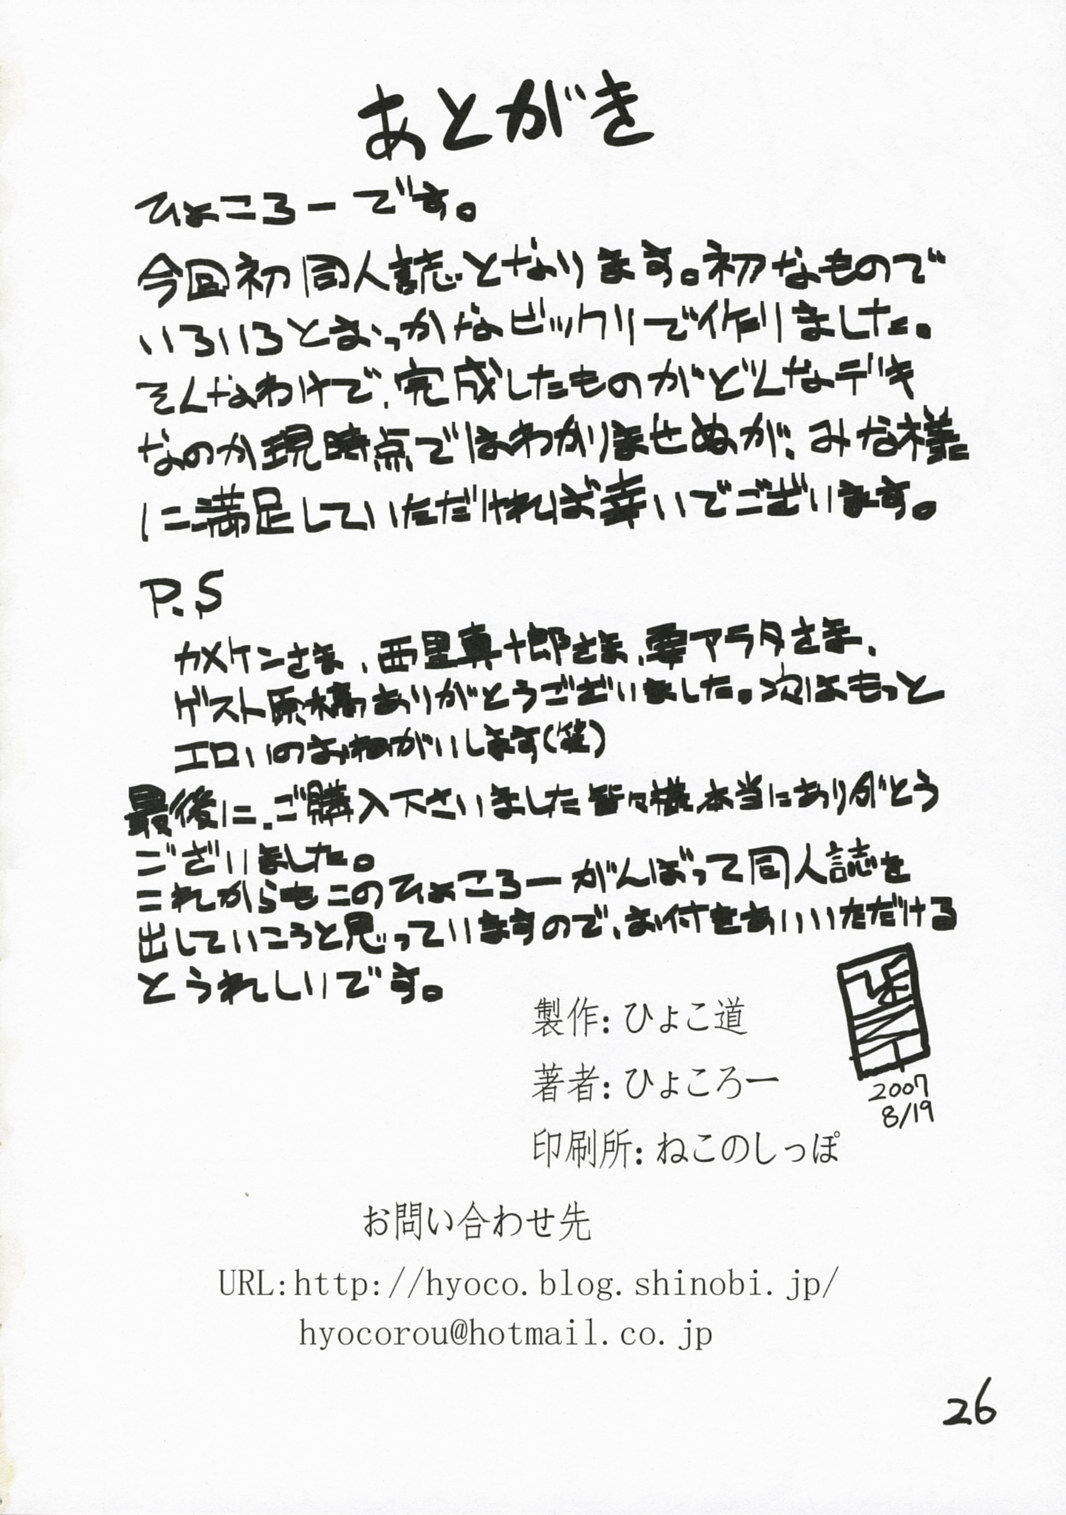 あとがき
ひょころーです。
今回初同人誌となります。初なもので
いろいろとおっかなビックリで作りました。
そんなわけで、完成したものがどんなデキ
なのか現時点ではわかりませぬが、みな様に
に満足していただければ幸いでございます。
P.S
カメケンさま、西里真十郎さま、雫アラタさま、
ゲスト原稿ありがとうございました。次はもっと
エロいのおねがいします(笑)
最後に、ご購入下さいました皆々様、本当にありがとう
ございました。
これからもこのひょころーがんばって同人誌を
出していこうと思っていますので、お付きあいいただける
とうれしいです。
製作:ひょこ道
著者:ひょころー
2007
8/19
印刷所:ねこのしっぽ
お問い合わせ先
URL:http://hyoco.blog.shinobi.jp/
hyocorou@hotmail.co.jp
26